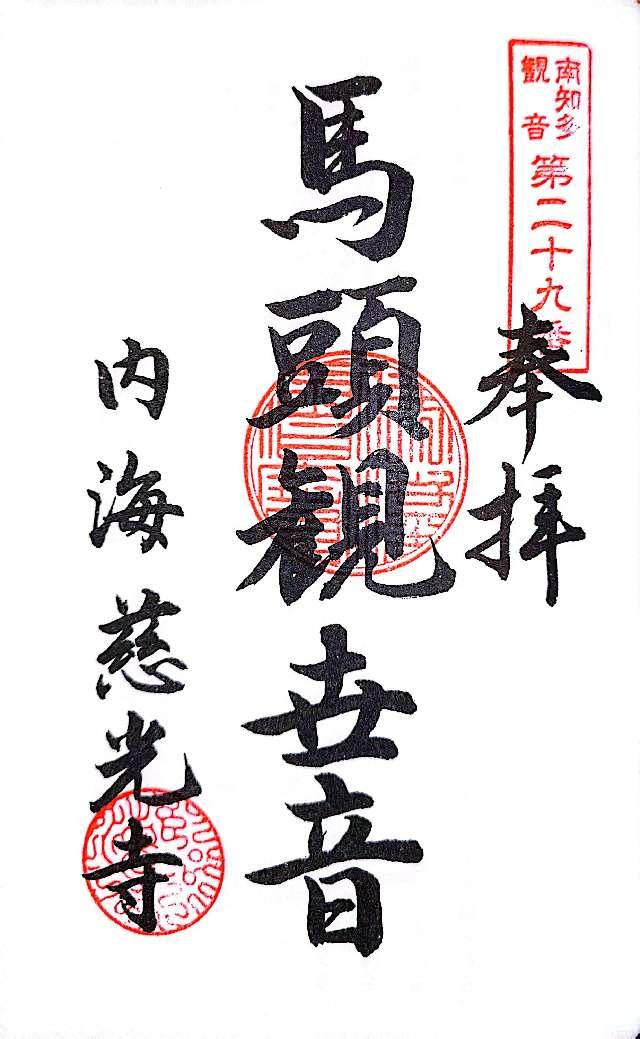 南知多
観音
第二十九番
奉拝
馬頭観世音
内海慈光寺